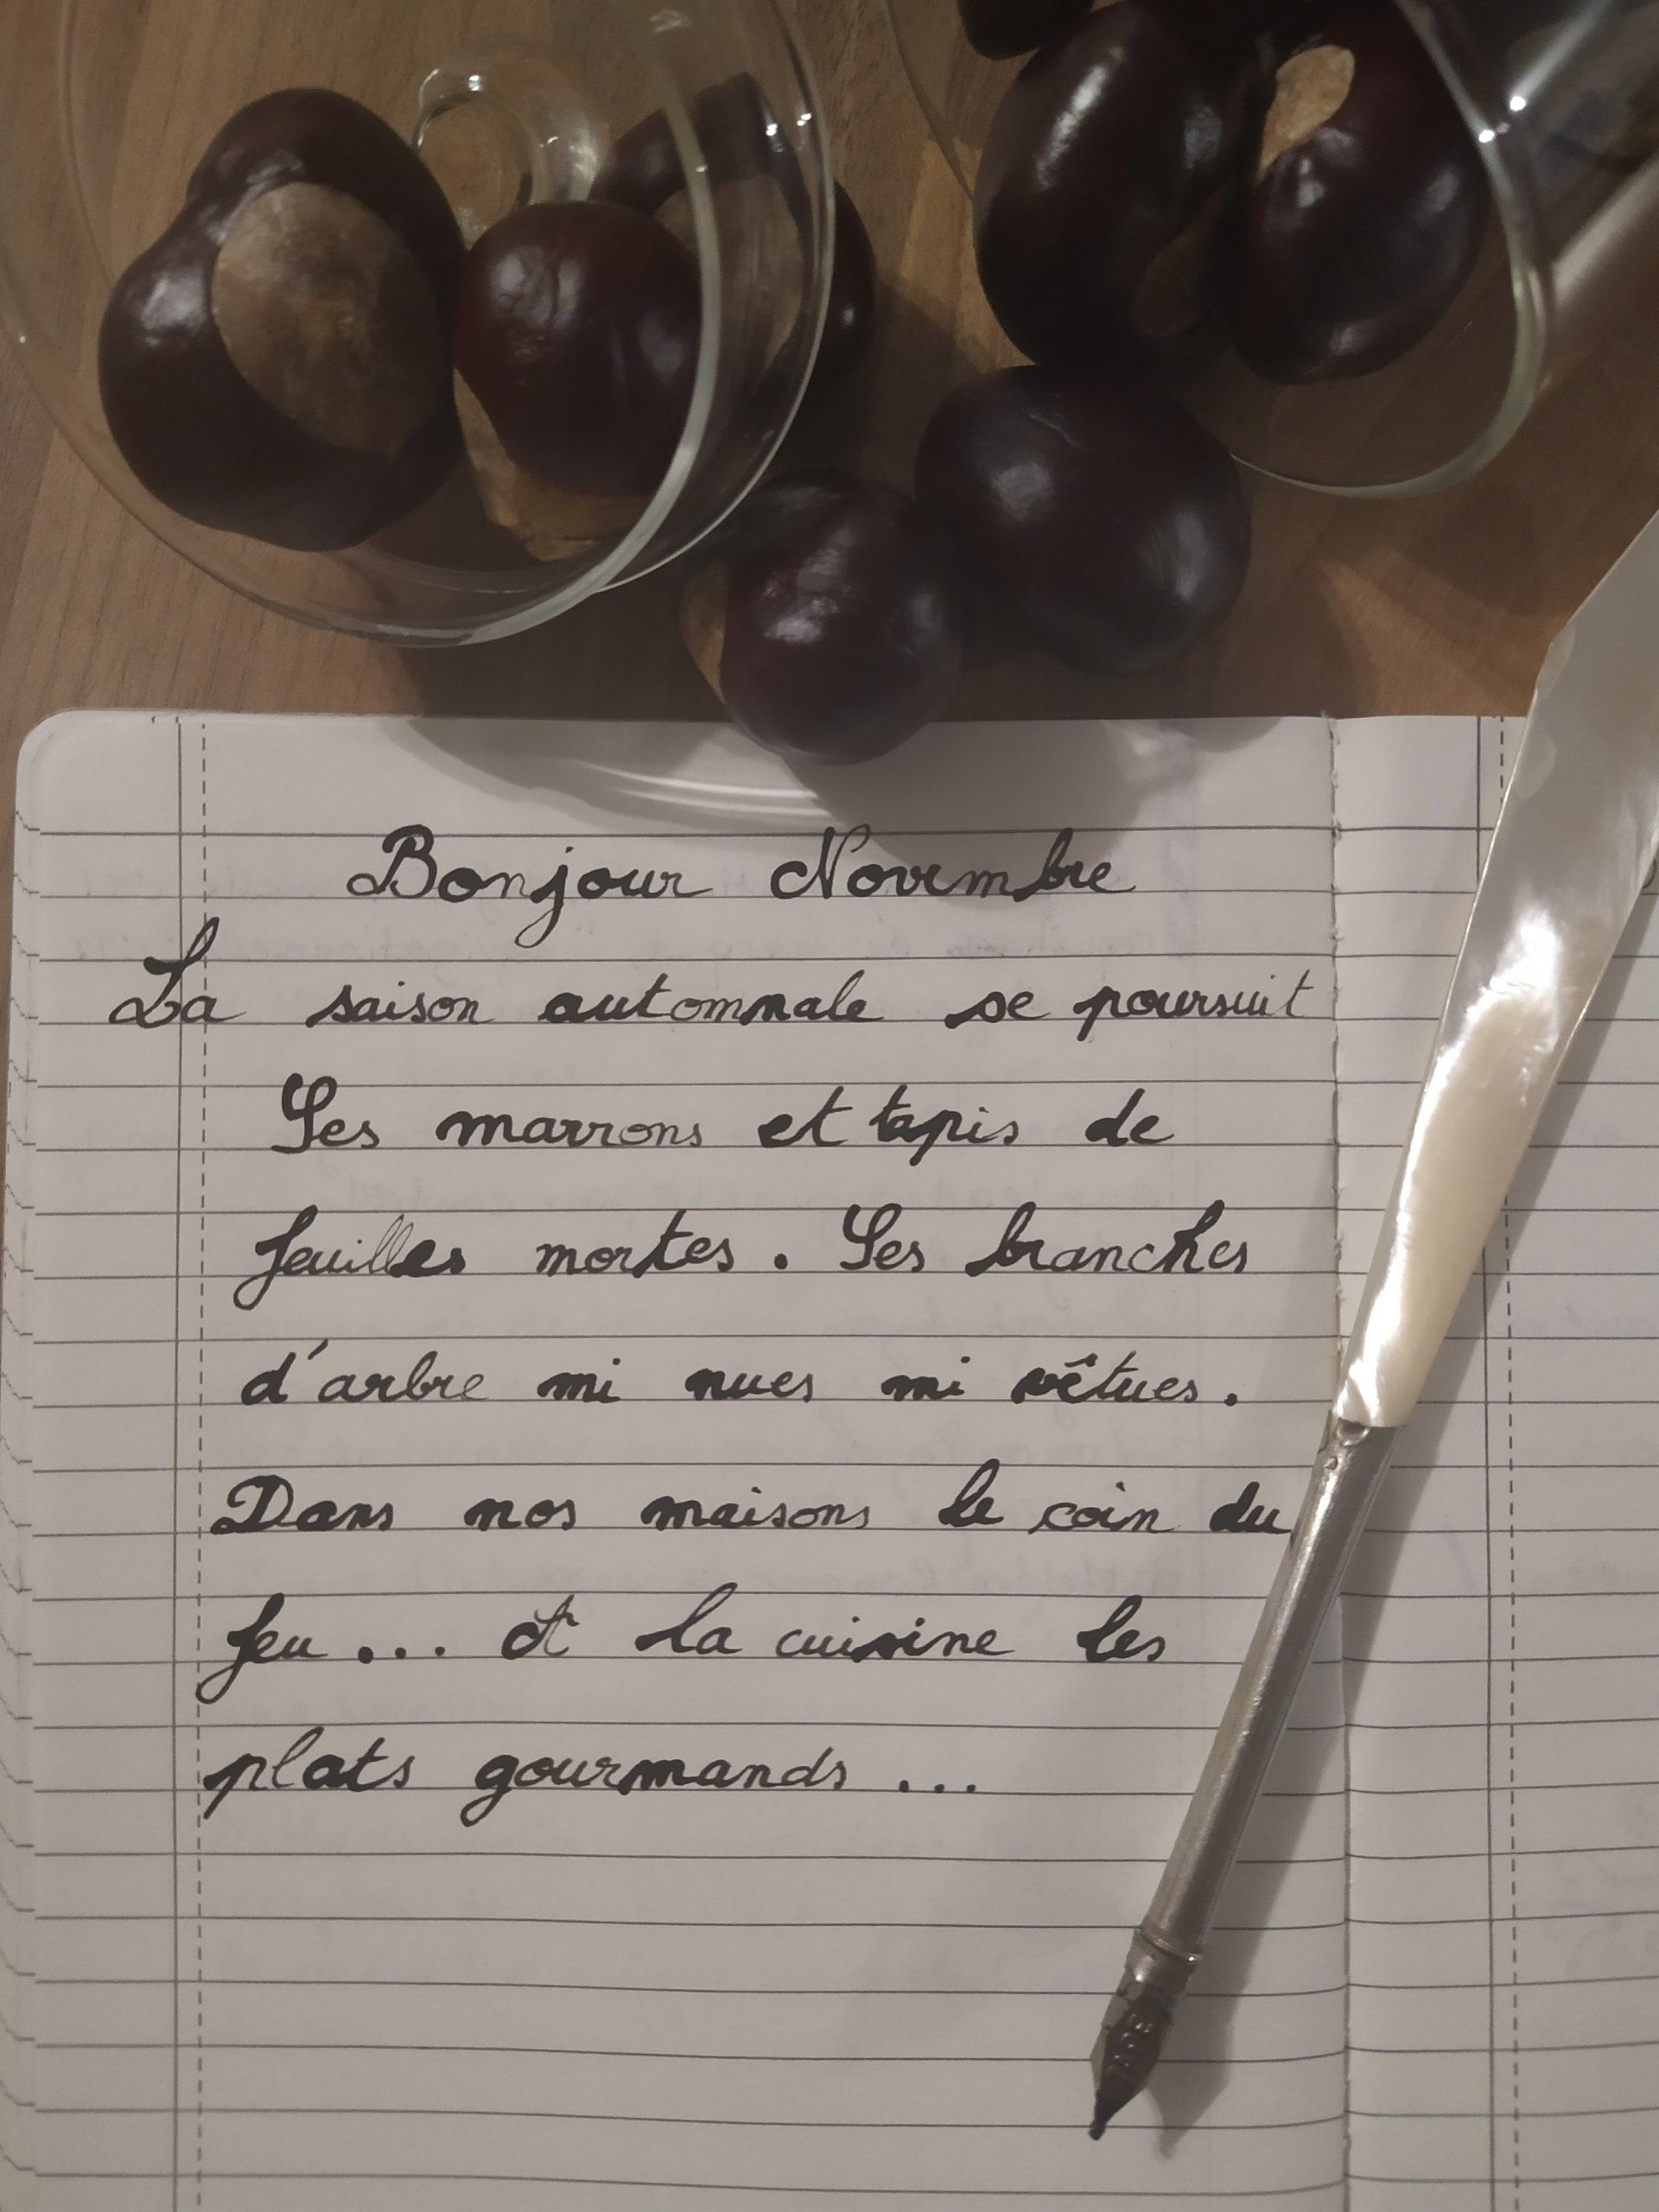 Bonjour Novembre
La saison automnale se poursuit
Ses marrons et tapis de
feuilles mortes. Ses branches
d'arbre mi nues mi vêtues.
Dans nos maisons le coin du
feu... et la cuisine les
plats gourmands...